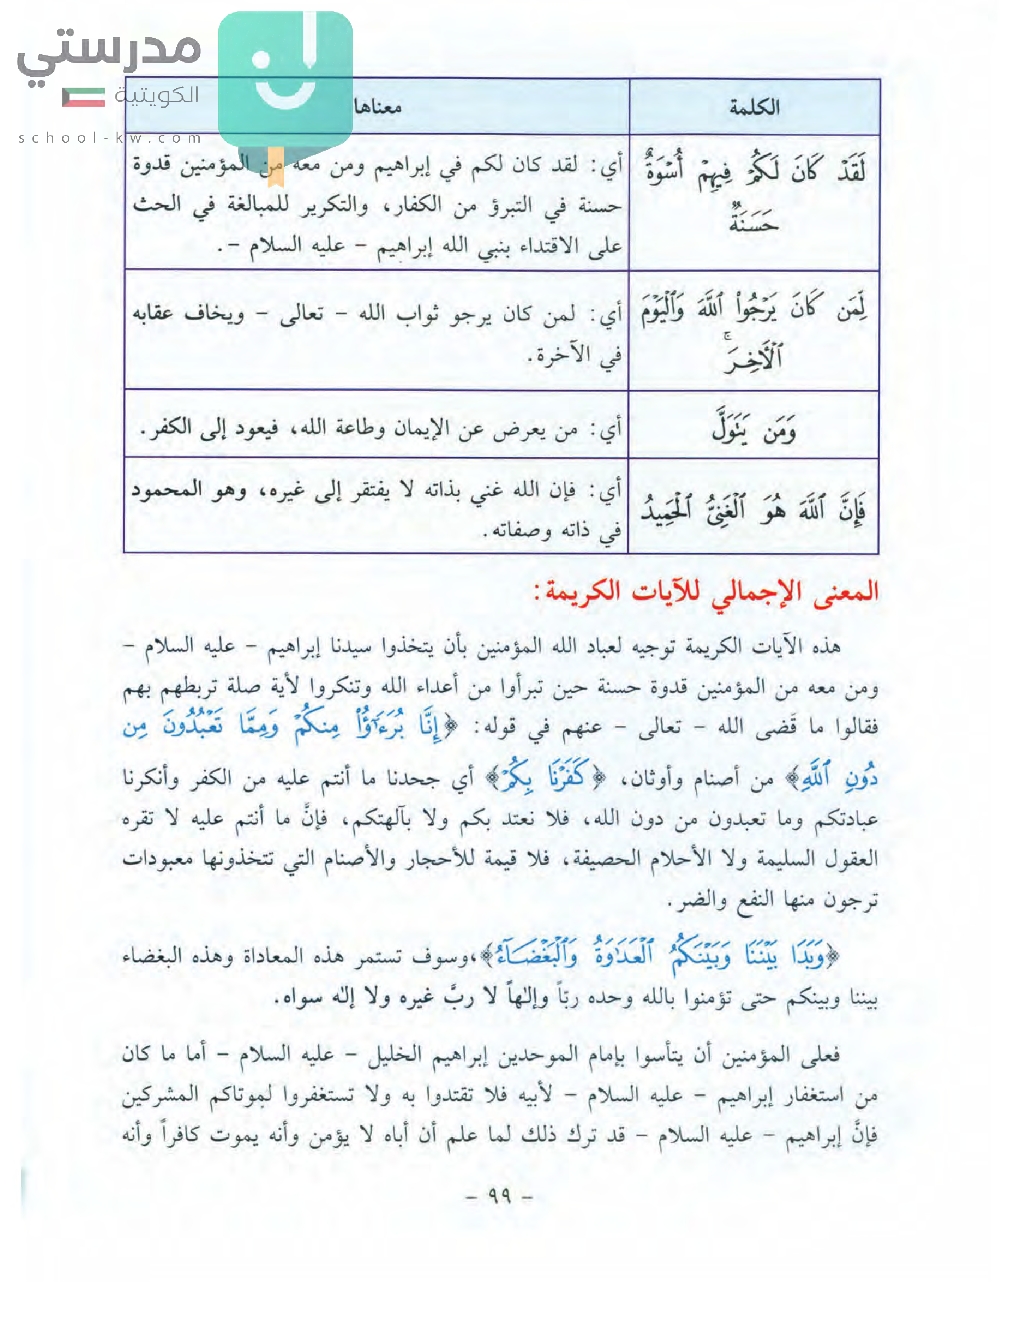 مدرستي
الكويتية
school-kw.com
الكلمة
معناها
لَقَدْ كَانَ لَكُمْ فِيهِمْ أُسْوَةٌ
حَسَنَةٌ
أي: لقد كان لكم في إبراهيم ومن معه من المؤمنين قدوة
حسنة في التبرؤ من الكفار، والتكرير للمبالغة في الحث
على الاقتداء بنبي الله إبراهيم - عليه السلام -.
لِّمَن كَانَ يَرْجُواْ ٱللَّهَ وَٱلْيَوْمَ
ٱلْأَخِرَۚ
أي: لمن كان يرجو ثواب الله - تعالى - ويخاف عقابه
في الآخرة.
وَمَن يَتَوَلَّ
أي: من يعرض عن الإيمان وطاعة الله، فيعود إلى الكفر.
فَإِنَّ ٱللَّهَ هُوَ ٱلْغَنِىُّ ٱلْحَمِيدُ
أي: فإن الله غني بذاته لا يفتقر إلى غيره، وهو المحمود
في ذاته وصفاته.
المعنى الإجمالي للآيات الكريمة:
هذه الآيات الكريمة توجيه لعباد الله المؤمنين بأن يتخذوا سيدنا إبراهيم - عليه السلام -
ومن معه من المؤمنين قدوة حسنة حين تبرأوا من أعداء الله وتنكروا لأية صلة تربطهم بهم
فقالوا ما قَضى الله - تعالى - عنهم في قوله: ﴿إِنَّا بُرَءَٰٓؤُاْ مِنكُمْ وَمِمَّا تَعْبُدُونَ مِن
دُونِ ٱللَّهِ﴾ من أصنام وأوثان، ﴿كَفَرْنَا بِكُمْ﴾ أي جحدنا ما أنتم عليه من الكفر وأنكرنا
عبادتكم وما تعبدون من دون الله، فلا نعتد بكم ولا بآلهتكم، فإنَّ ما أنتم عليه لا تقره
العقول السليمة ولا الأحلام الحصيفة، فلا قيمة للأحجار والأصنام التي تتخذونها معبودات
ترجون منها النفع والضر.
﴿وَبَدَا بَيْنَنَا وَبَيْنَكُمُ ٱلْعَدَٰوَةُ وَٱلْبَغْضَآءُ﴾،وسوف تستمر هذه المعاداة وهذه البغضاء
بيننا وبينكم حتى تؤمنوا بالله وحده ربّاً وإلهاً لا ربَّ غيره ولا إله سواه.
فعلى المؤمنين أن يتأسوا بإمام الموحدين إبراهيم الخليل - عليه السلام - أما ما كان
من استغفار إبراهيم - عليه السلام - لأبيه فلا تقتدوا به ولا تستغفروا لموتاكم المشركين
فإنَّ إبراهيم - عليه السلام - قد ترك ذلك لما علم أن أباه لا يؤمن وأنه يموت كافراً وأنه
- ٩٩ -